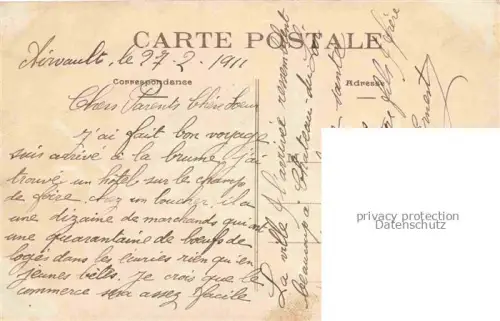 CARTE POSTALE
Correspondance
Adresse
Airvault, le 27_2_1911
Chers Parents Chère Soeur
J'ai fait bon voyage
suis arrivé à la brume, j'ai
trouvé un hôtel sur le champ
de foire chez un boucher. il a
une dizaine de marchands qui ont
une quarantaine de boeufs de
logés dans les écuries rien qu'en
jeunes bêtes. Je crois que le
commerce sera assez facile
La ville à l'arrivée ressemblait
beaucoup à Chateau-du-Loir
santé
fils frère
privacy protection
Datenschutz